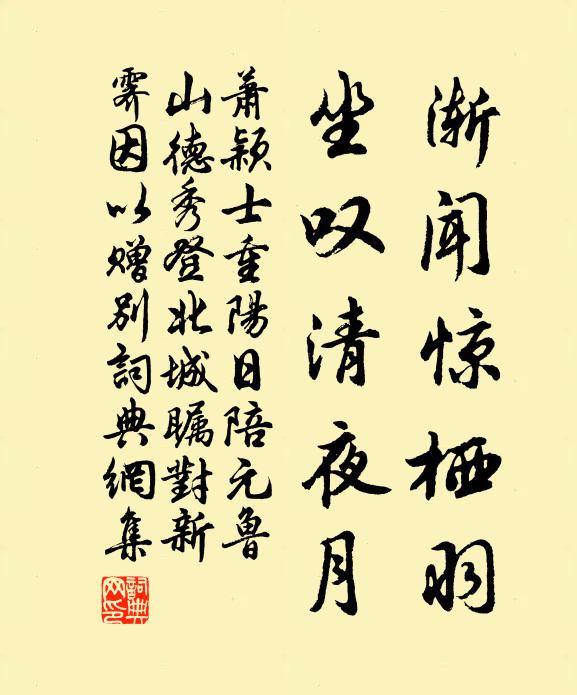 渐闻惊栖羽
坐叹清夜月
萧颖士重陽日陪元魯
山德秀登北城瞩對新
霁因以赠别詞典網集
詞典網印